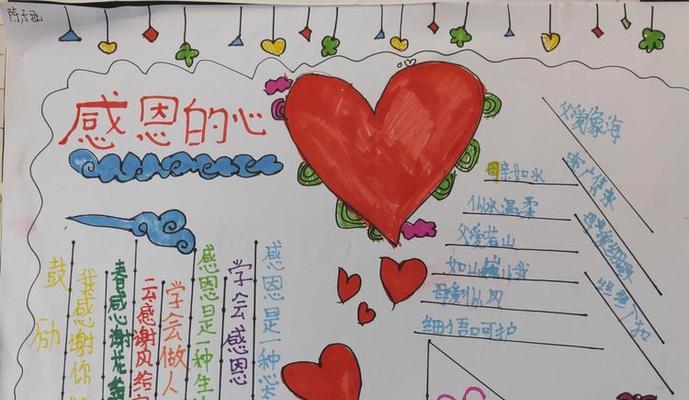 陈子涵
感恩的心
父爱像海
母爱细腻
丝丝入扣
母亲如水
似水温柔
父爱若山
如山
我
母爱似风
细语呵护
感恩是一种
学会感恩
感恩是一种生
学会做人
云感谢风给
春感谢花
我感谢你
鼓励